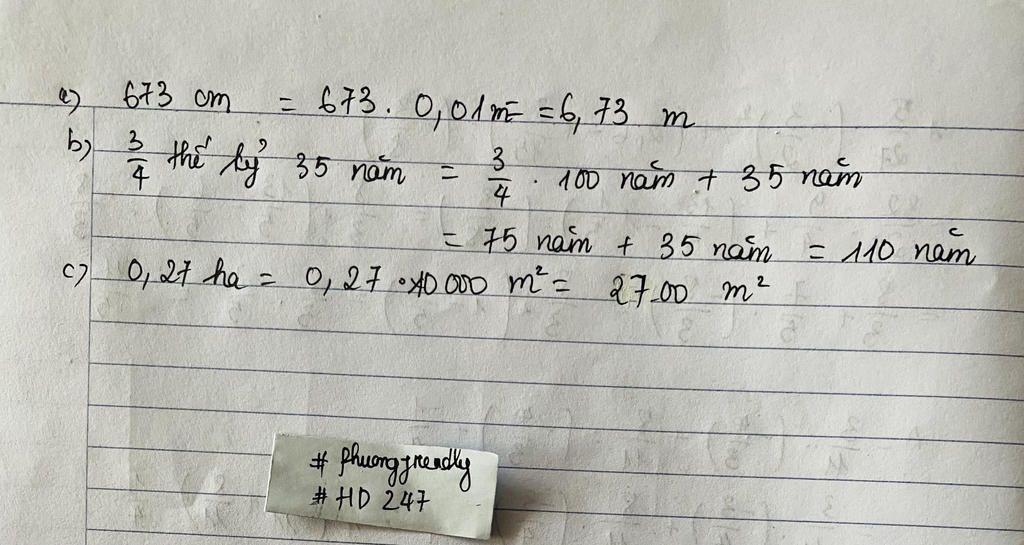 a) 673 cm = 673 . 0,01 m = 6,73 m
b) 3/4 thế kỷ 35 năm = 3/4 . 100 năm + 35 năm
= 75 năm + 35 năm = 110 năm
c) 0,27 ha = 0,27 . 10 000 m² = 2700 m²
# phuongfrendly
# HD 247